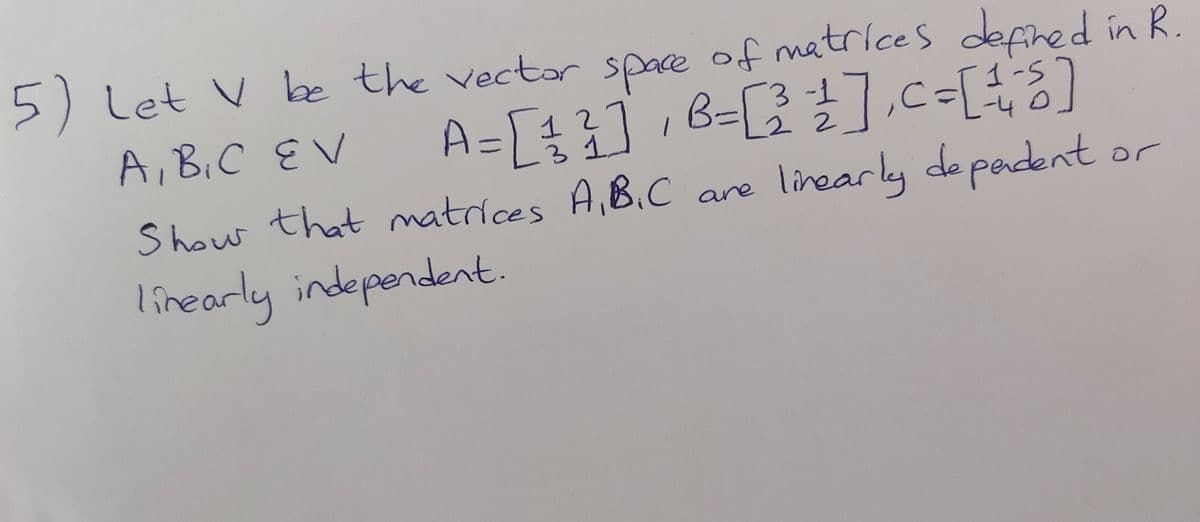 5) Let V be the vector space of matrices defined in R.
A, B, C ε V A=[1 2 3 1] , B=[3 -1 2 2] , C=[1 -5 -4 0]
Show that matrices A, B, C are linearly dependent or
linearly independent.